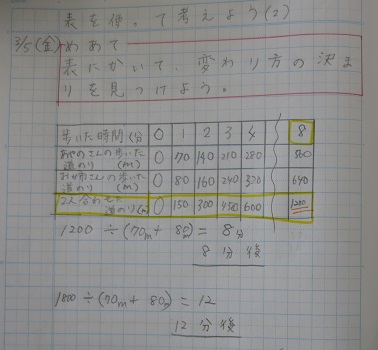 表を使って考えよう(2)
3/5(金)めあて
表にかいて、変わり方の決ま
りを見つけよう。
歩いた時間(分) 0 1 2 3 4 8
あやのさんの歩いた道のり(m) 0 70 140 210 280 560
お姉さんの歩いた道のり(m) 0 80 160 240 320 640
2人合わせた道のり(m) 0 150 300 450 600 1200
1200÷(70m+80m)=8分
8分後
1800÷(70m+80m)=12
12分後